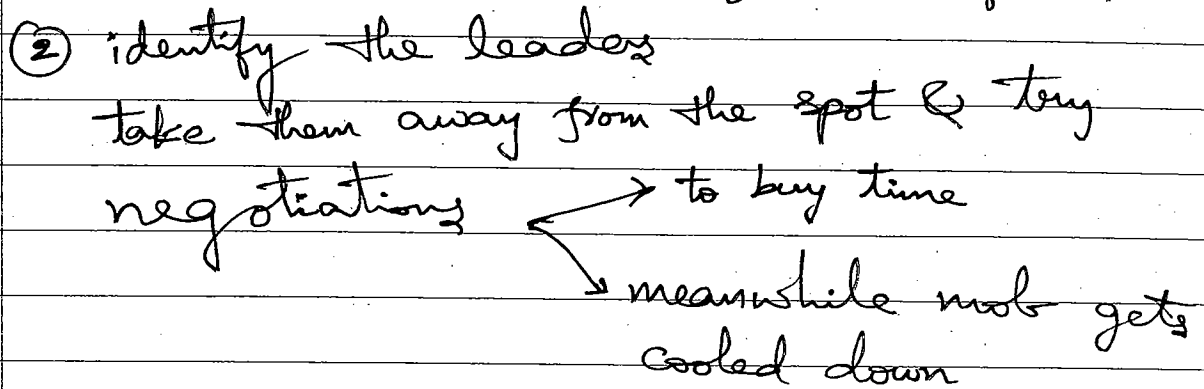 ② identify the leaders
take them away from the spot & try
negotiations → to buy time
↘ meanwhile mob gets
cooled down